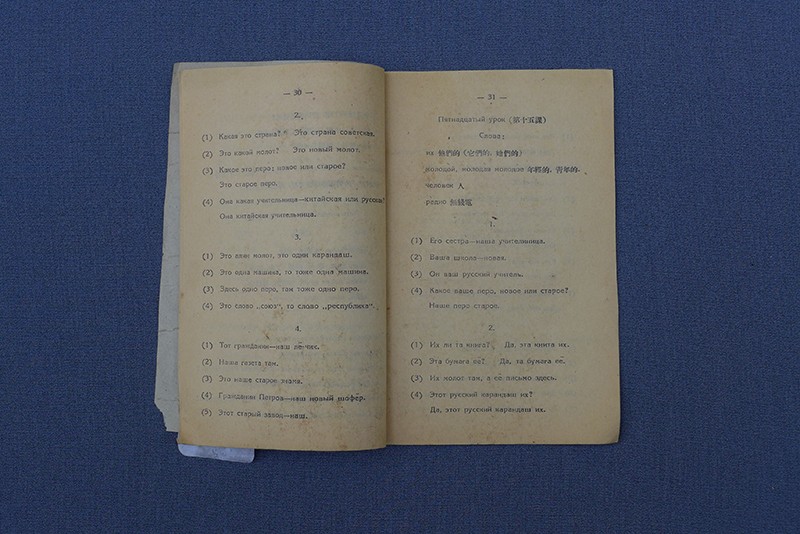 — 30 —
2.
(1) Какая это страна? Это страна советская.
(2) Это какой молот? Это новый молот.
(3) Какое это перо: новое или старое?
Это старое перо.
(4) Она какая учительница—китайская или русская?
Она китайская учительница.
3.
(1) Это один молот, это один карандаш.
(2) Это одна машина, то тоже одна машина.
(3) Здесь одно перо, там тоже одно перо.
(4) Это слово „союз“, то слово „республика“.
4.
(1) Тот гражданин—наш
(2) Наша газета там.
(3) Это наше старое знамя.
(4) Гражданин Петров—наш новый шофёр.
(5) Этот старый завод—наш.
— 31 —
Пятнадцатый урок (第十五課)
Слова:
их 他們的 (它們的, 她們的)
молодой, молодая молодое 年輕的, 青年的.
человек 人
радио 無綫電
1.
(1) Его сестра—наша учительница.
(2) Ваша школа—новая.
(3) Он ваш русский учитель.
(4) Какое ваше перо, новое или старое?
Наше перо старое.
2.
(1) Их ли та книга? Да, эта книга их.
(2) Эта бумага её? Да, та бумага её.
(3) Их молот там, а её письмо здесь.
(4) Этот русский карандаш их?
Да, этот русский карандаш их.